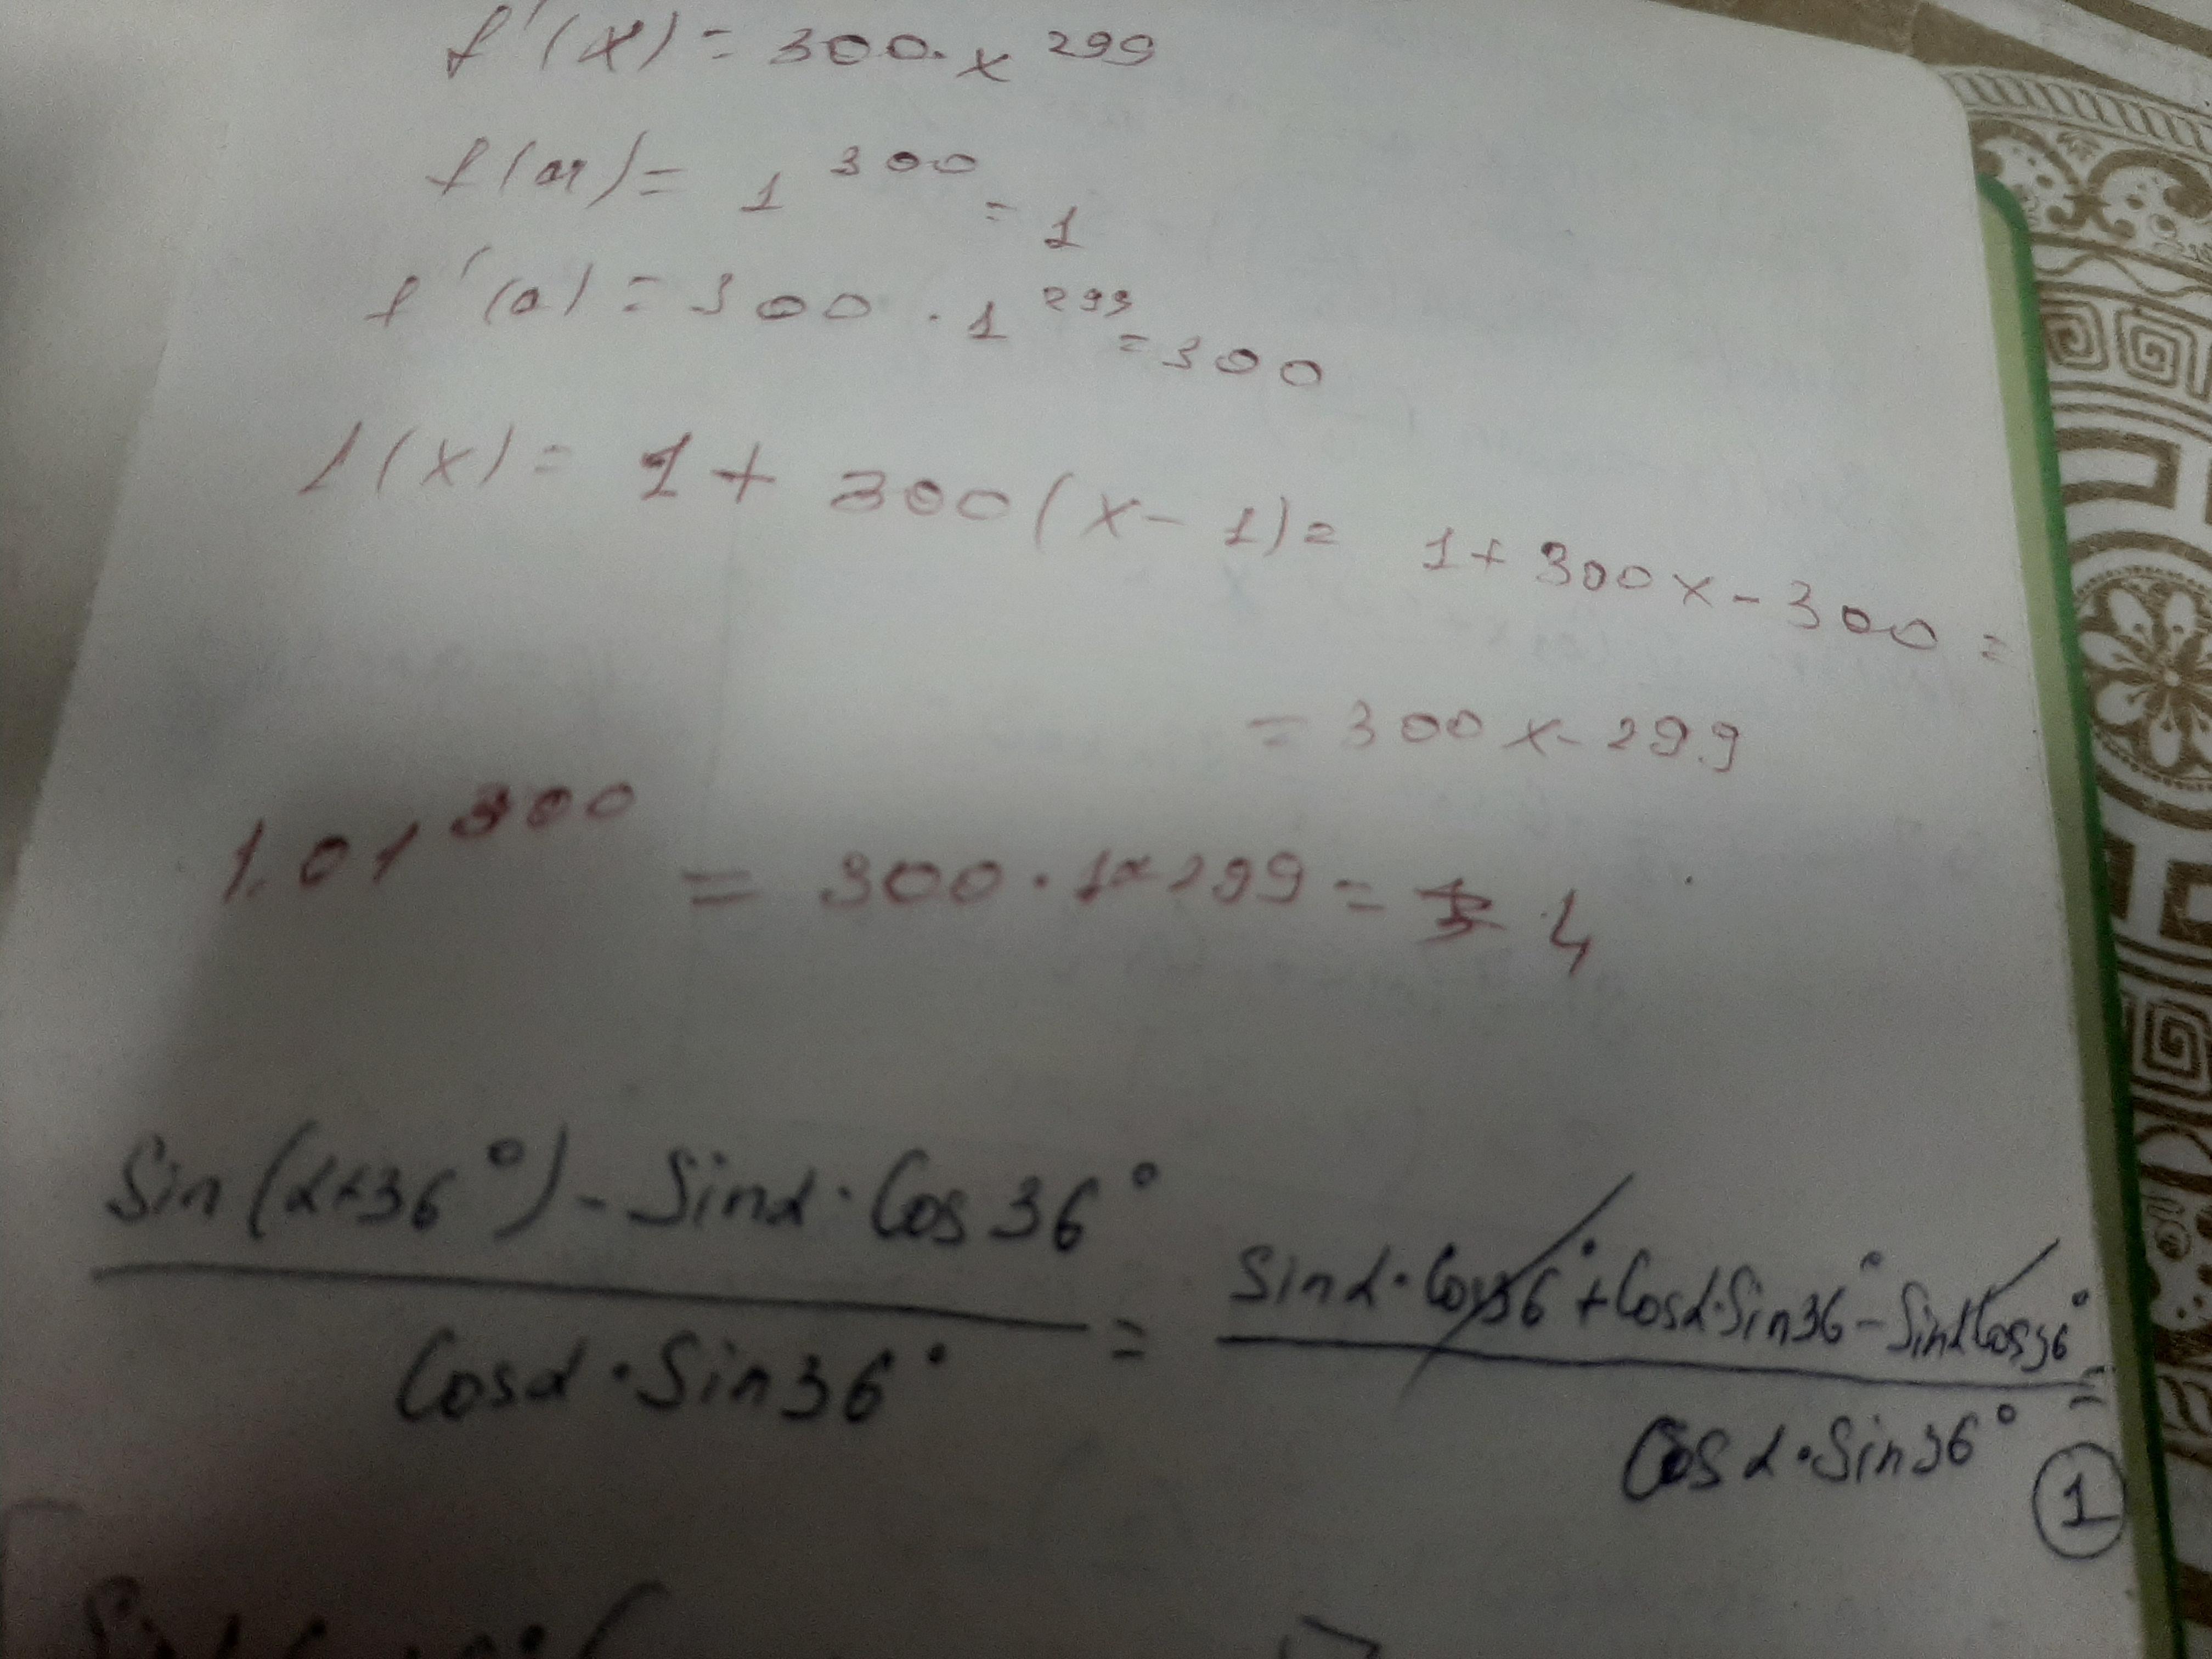 f'(x) = 300·x^299
f(a) = 1^300 = 1
f'(a) = 300 · 1^299 = 300
l(x) = 1 + 300(x - 1) = 1 + 300x - 300 =
= 300x - 299
1.01^300 = 300 · 1 299 = 4
(Sin(α+36°) - Sinα · Cos36°) / (Cosα · Sin36°) = (Sinα · Cos36° + Cosα · Sin36° - SinαCos36°) / (Cosα · Sin36°) =
1